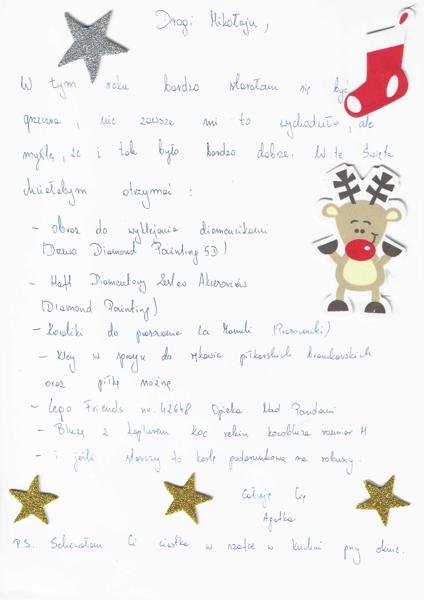 Drogi Mikołaju,
W tym roku bardzo starałam się być
grzeczna, nie zawsze mi to wychodziło, ale
myślę, że i tak było bardzo dobrze. W te Święta
chciałabym otrzymać:
- Obraz do wyklejania diamencikami
(Drzewo Diamond Painting 5D)
- Haft Diamentowy Zestaw Akcesoriów
(Diamond Painting)
- Koraliki do prasowania La Manuli (Prasowanki)
- Klej w sprayu do rękawic piłkarskich bramkarskich
oraz piłkę nożną
- Lego Friends nr. 42648 Opieka Nad Pandami
- Bluzę z kapturem koc rekin rozmiar M
- i jeśli starczy to kartę podarunkową na robuxy.
Całuję Cię
Agatka
P.S. Schowałam Ci ciastka w szafce w kuchni przy oknie.